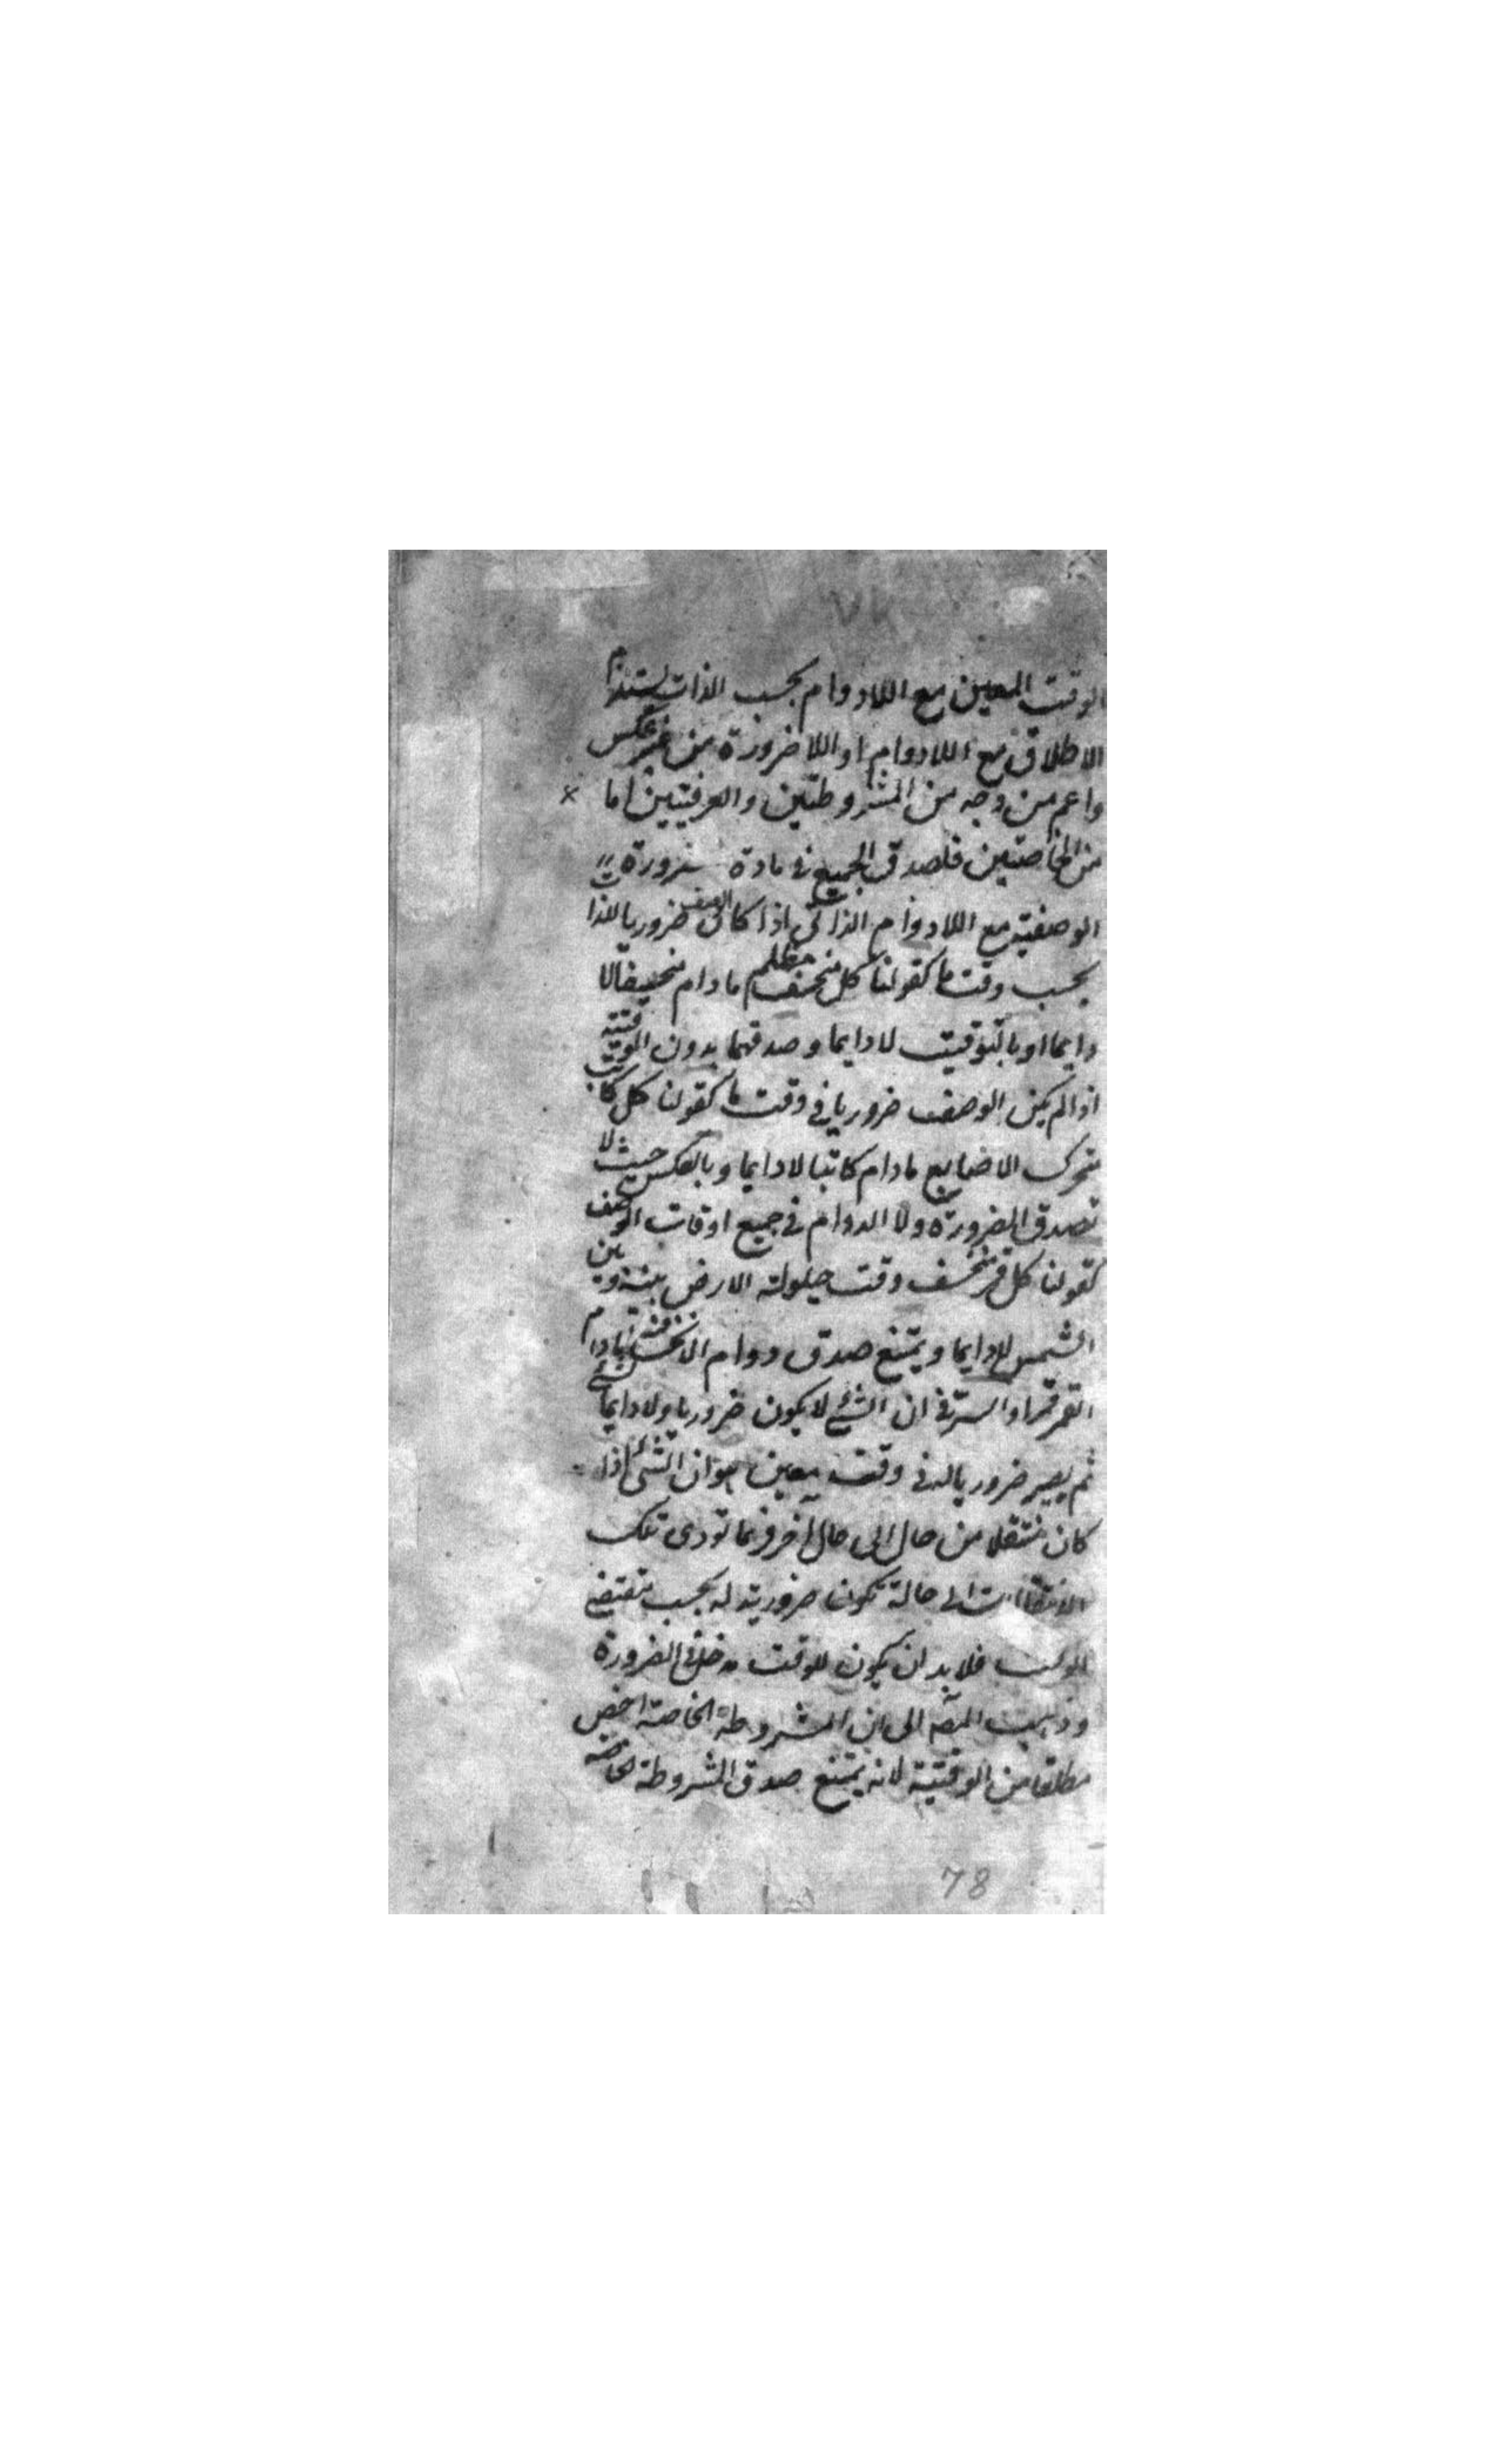 الوقت المعين مع اللادوام بحسب الذات يستلزم
الاطلاق مع اللادوام او اللاضرورة من غير عكس
واعم من وجه من المشروطتين والعرفيتين اما
من الخاصتين فلصدق الجميع فى مادة ضرورة
الوصفية مع اللادوام الذاتى اذا كان الوصف ضروريا للذات
بحسب وقت ما كقولنا كل منخسف مظلم ما دام منخسفا لا
دايما او بالتوقيت لا دايما وصدقهما بدون الوقتية
اذا لم يكن الوصف ضروريا فى وقت ما كقولنا كل كاتب
متحرك الاصابع ما دام كاتبا لا دايما وبالعكس حيث لا
تصدق الضرورة ولا الدوام فى جميع اوقات الوصف
كقولنا كل قمر منخسف وقت حيلولة الارض بينه وبين
الشمس لا دايما ويمتنع صدق دوام الانخساف ما دام
القمر قمرا والسر فى ان الشئ لا يكون ضروريا ولا دايما لشئ
ثم يصير ضروريا له فى وقت معين هو ان الشئ اذا
كان منتقلا من حال الى حال آخر فربما تودى تلك
الانتقالات الى حالة تكون ضرورية له بحسب مقتضى
الوقت فلا بد ان يكون للوقت مدخل فى الضرورة
وذهب المصه الى ان المشروطة الخاصة اخص
مطلقا من الوقتية لانه يمتنع صدق المشروطة الخاصة
78